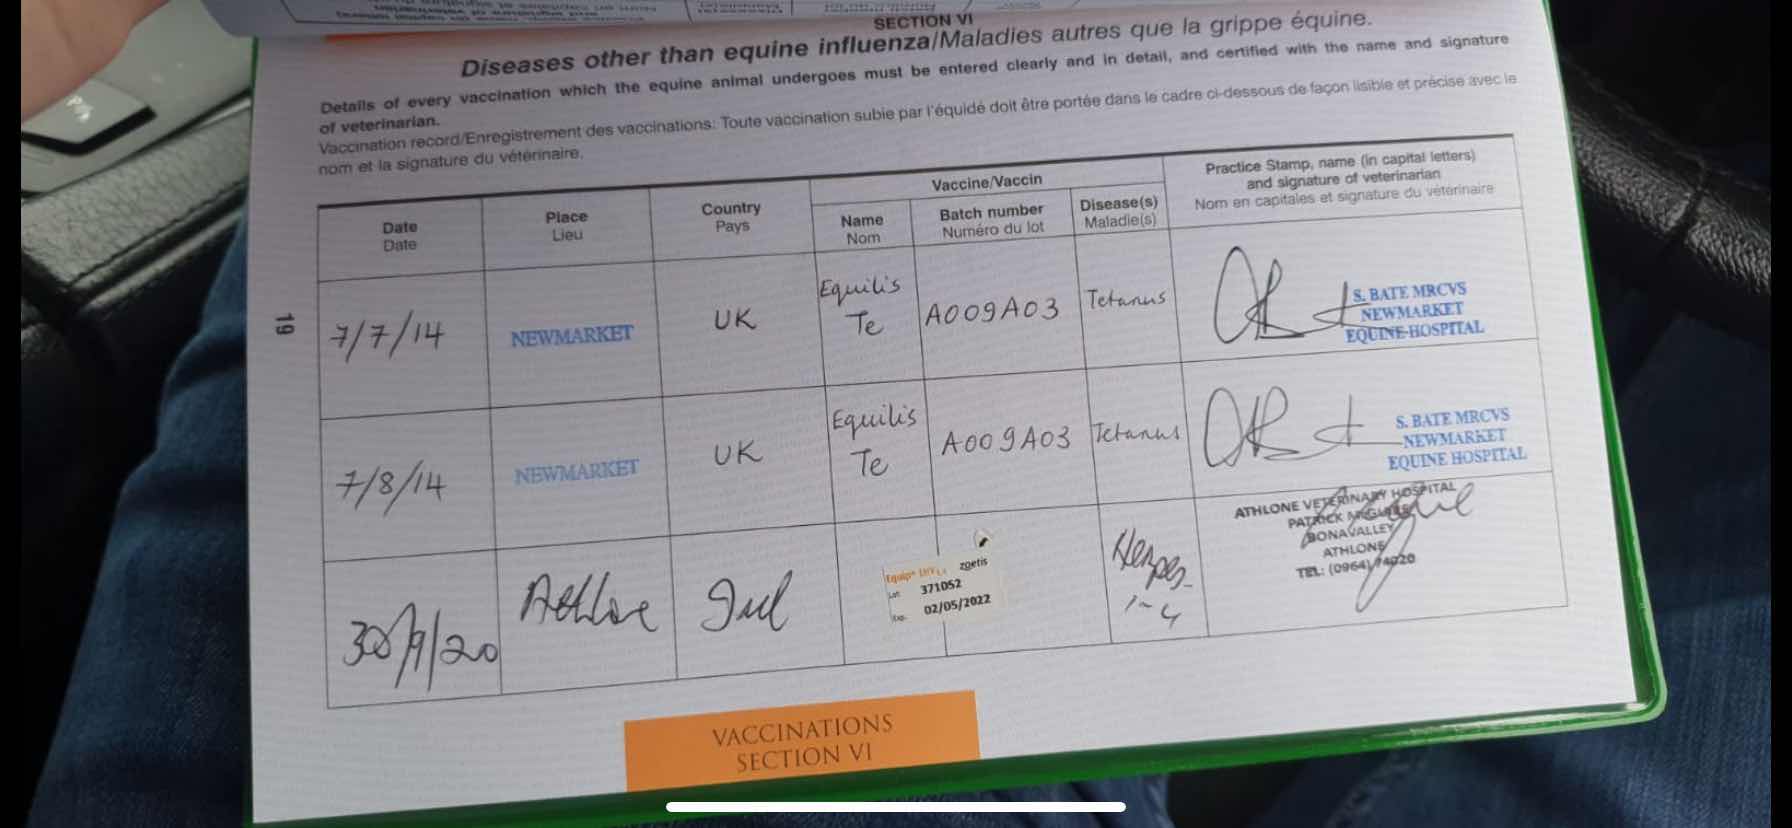 SECTION VI
Diseases other than equine influenza/Maladies autres que la grippe équine.
Details of every vaccination which the equine animal undergoes must be entered clearly and in detail, and certified with the name and signature
of veterinarian.
Vaccination record/Enregistrement des vaccinations: Toute vaccination subie par l'équidé doit être portée dans le cadre ci-dessous de façon lisible et précise avec le
nom et la signature du vétérinaire.
Date
Date
Place
Lieu
Country
Pays
Vaccine/Vaccin
Name
Nom
Batch number
Numéro du lot
Disease(s)
Maladie(s)
Practice Stamp, name (in capital letters)
and signature of veterinarian
Nom en capitales et signature du vétérinaire
19
7/7/14
NEWMARKET
UK
Equilis
Te
A009A03
Tetanus
S. BATE MRCVS
NEWMARKET
EQUINE HOSPITAL
7/8/14
NEWMARKET
UK
Equilis
Te
A009A03
Tetanus
S. BATE MRCVS
NEWMARKET
EQUINE HOSPITAL
30/9/20
Athlone
Irl
Equip
zoetis
Lot
371052
Exp.
02/05/2022
Herpes
1-4
ATHLONE VETERINARY HOSPITAL
PATRICK
BONAVALLEY
ATHLONE
TEL: (0964) 74020
VACCINATIONS
SECTION VI